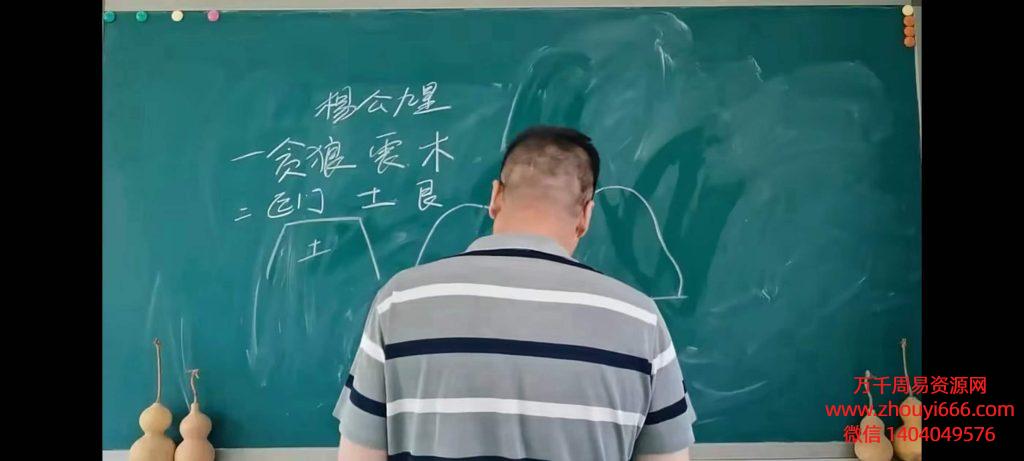 杨公九星
一贪狼 震 木
二巨门 土 艮
土
万千周易资源网
www.zhouyi666.com
微信 1404049576